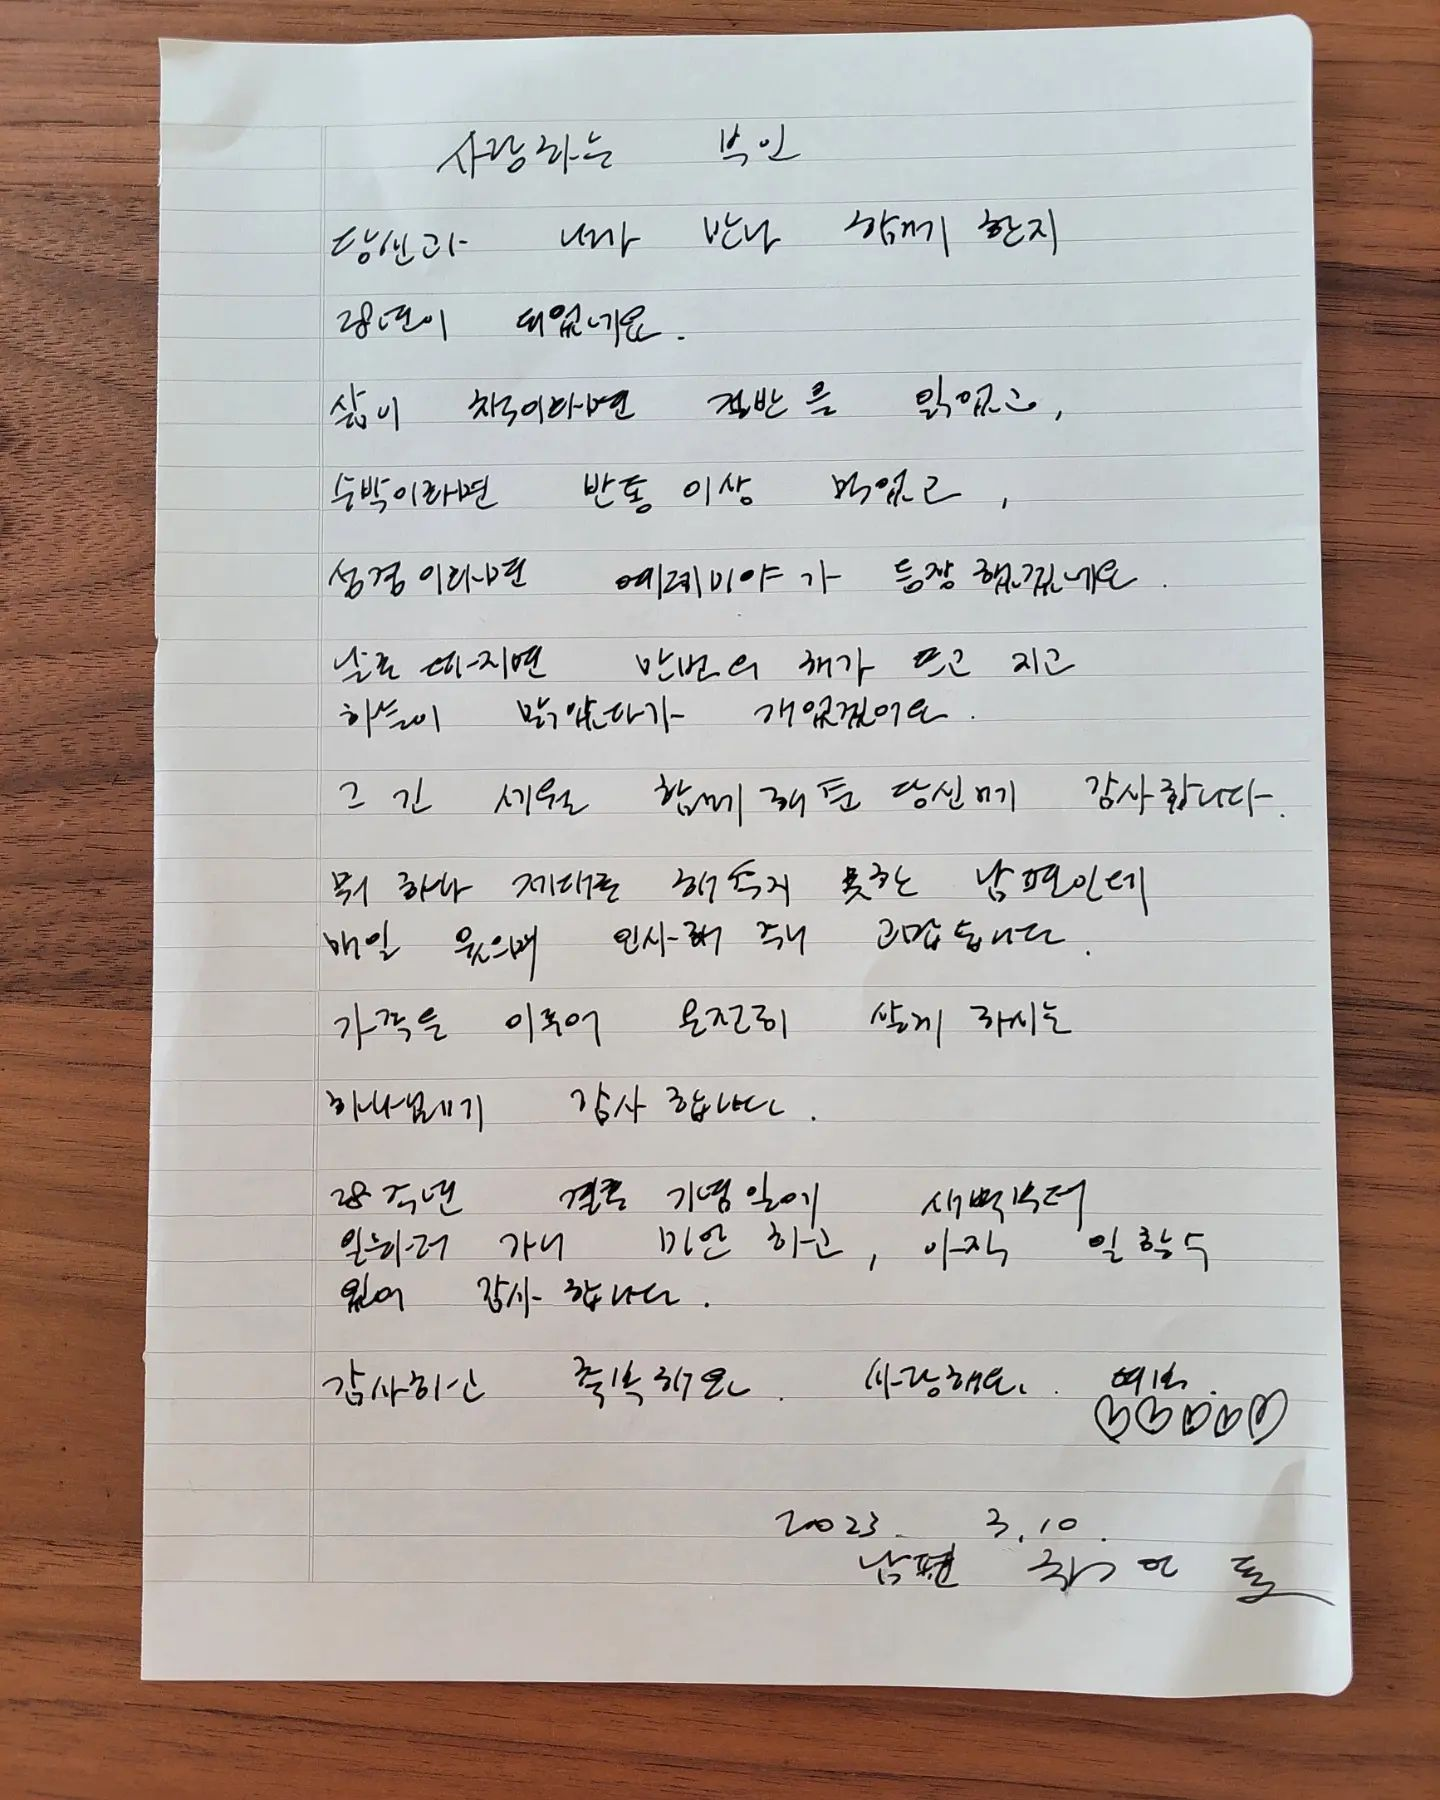 사랑하는 부인
당신과 내가 만나 함께 한지
28년이 되었네요.
삶이 책이라면 절반을 읽었고,
수박이라면 반통 이상 먹었고,
성경이라면 예레미야가 등장했겠네요.
날로 따지면 만번의 해가 뜨고 지고
하늘이 맑았다가 개었겠어요.
그 간 세월 함께해 준 당신께 감사합니다.
뭐 하나 제대로 해 주지 못한 남편인데
매일 웃으며 인사해 주니 고맙습니다.
가족을 이루어 온전히 살게 하시는
하나님께 감사합니다.
28주년 결혼 기념일에 새벽부터
일하러 가니 미안하고, 아직 일할 수
있어 감사합니다.
감사하고 축복해요. 사랑해요. 여보.
2023. 3. 10.
남편